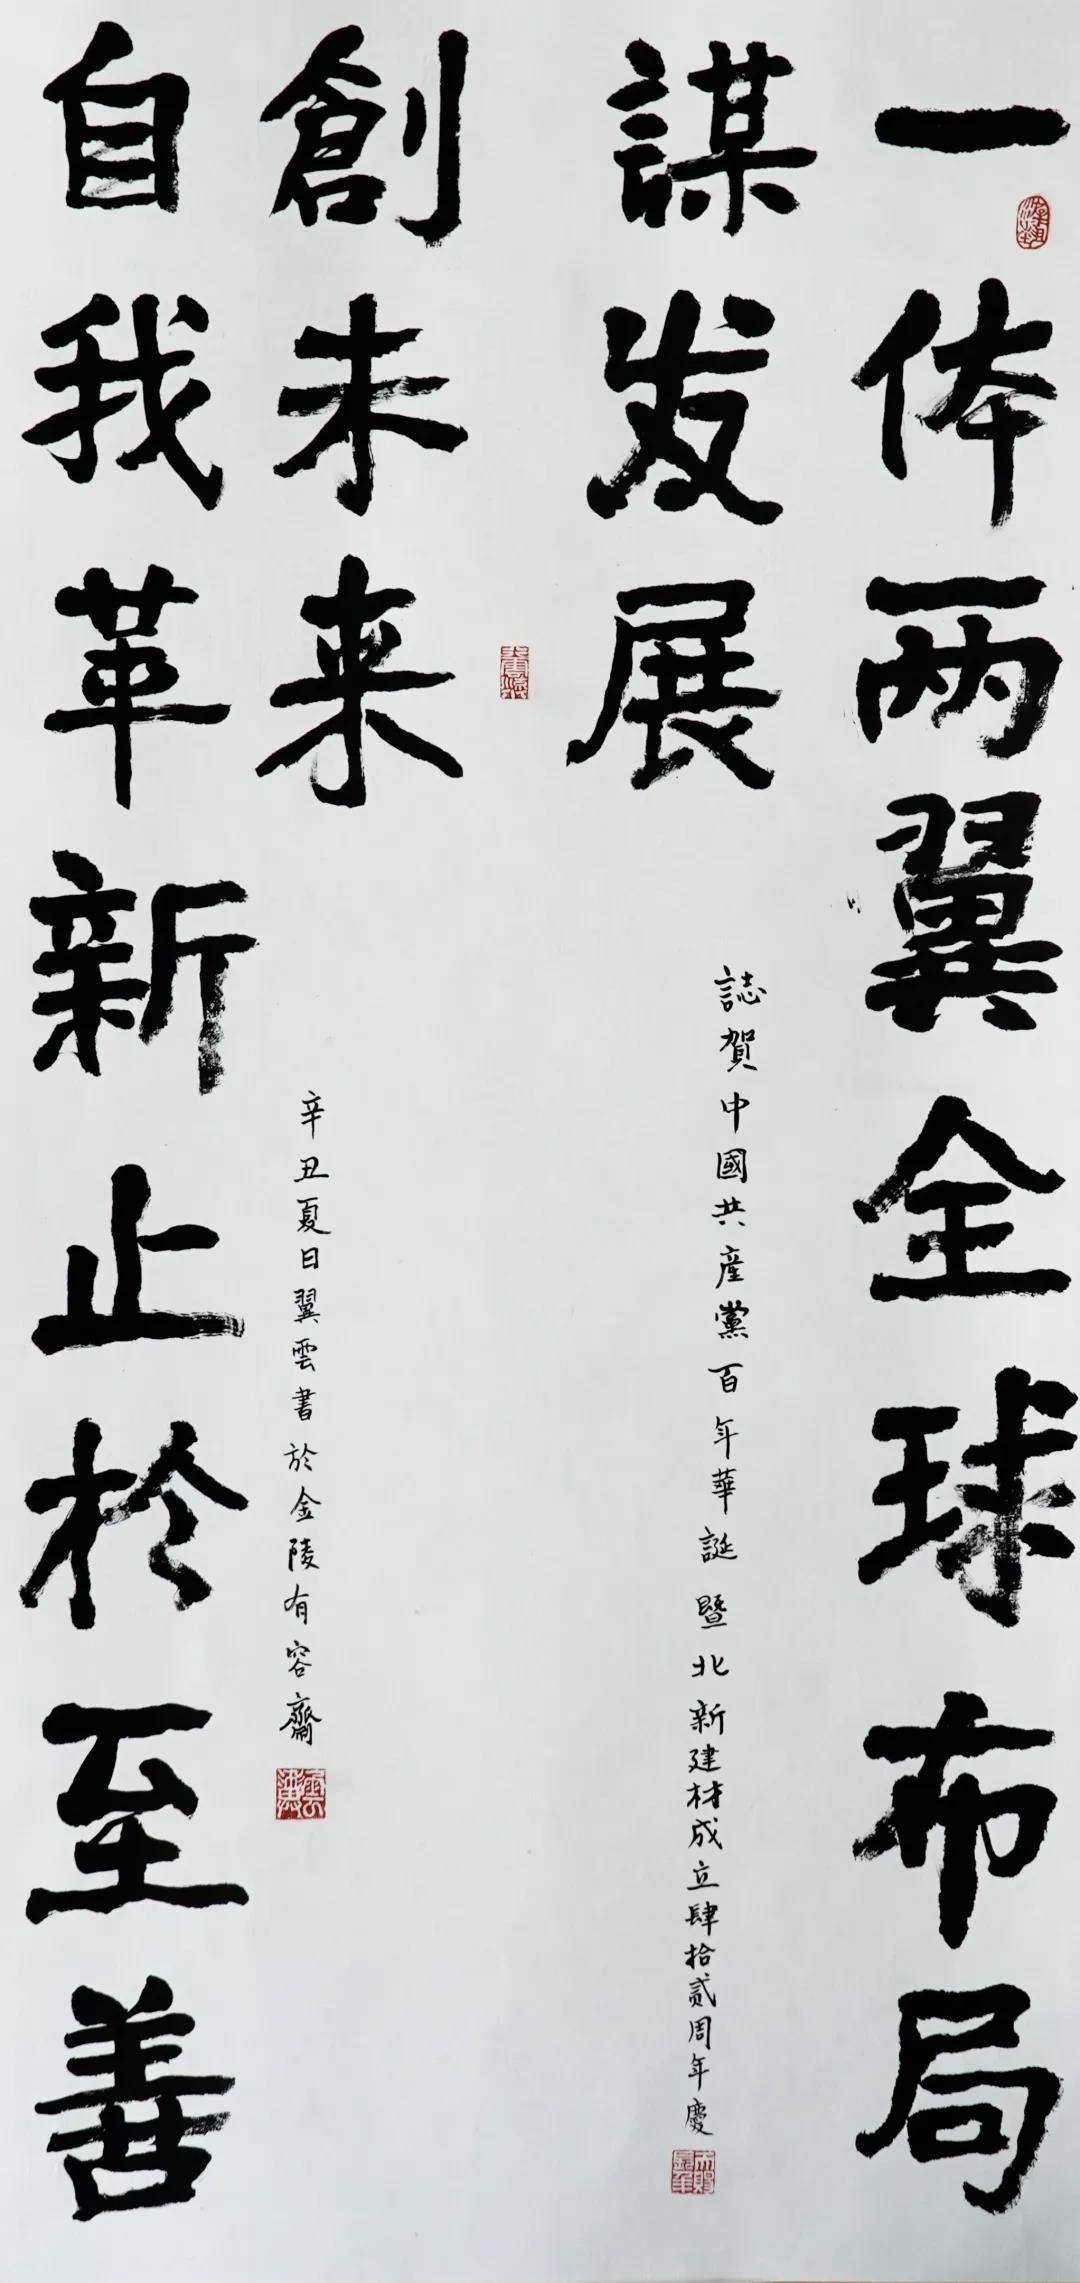 一体两翼全球布局
謀发展
誌賀中國共産黨百年華誕暨北新建材成立肆拾贰周年慶
自我革新止於至善
創未来
辛丑夏日翼雲書於金陵有容齋